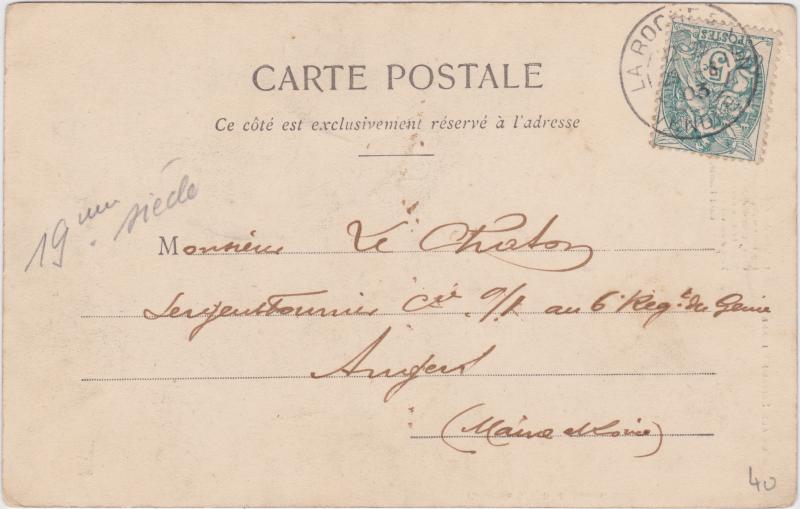 CARTE POSTALE
Ce côté est exclusivement réservé à l'adresse
19ème siècle
Monsieur Le Chaton
Sergent fourrier Cie 9/1 au 6e Regt du Genie
Angers
(Maine et Loire)
LA ROCHE-S-YON
VENDÉE
03
POSTES
5
40